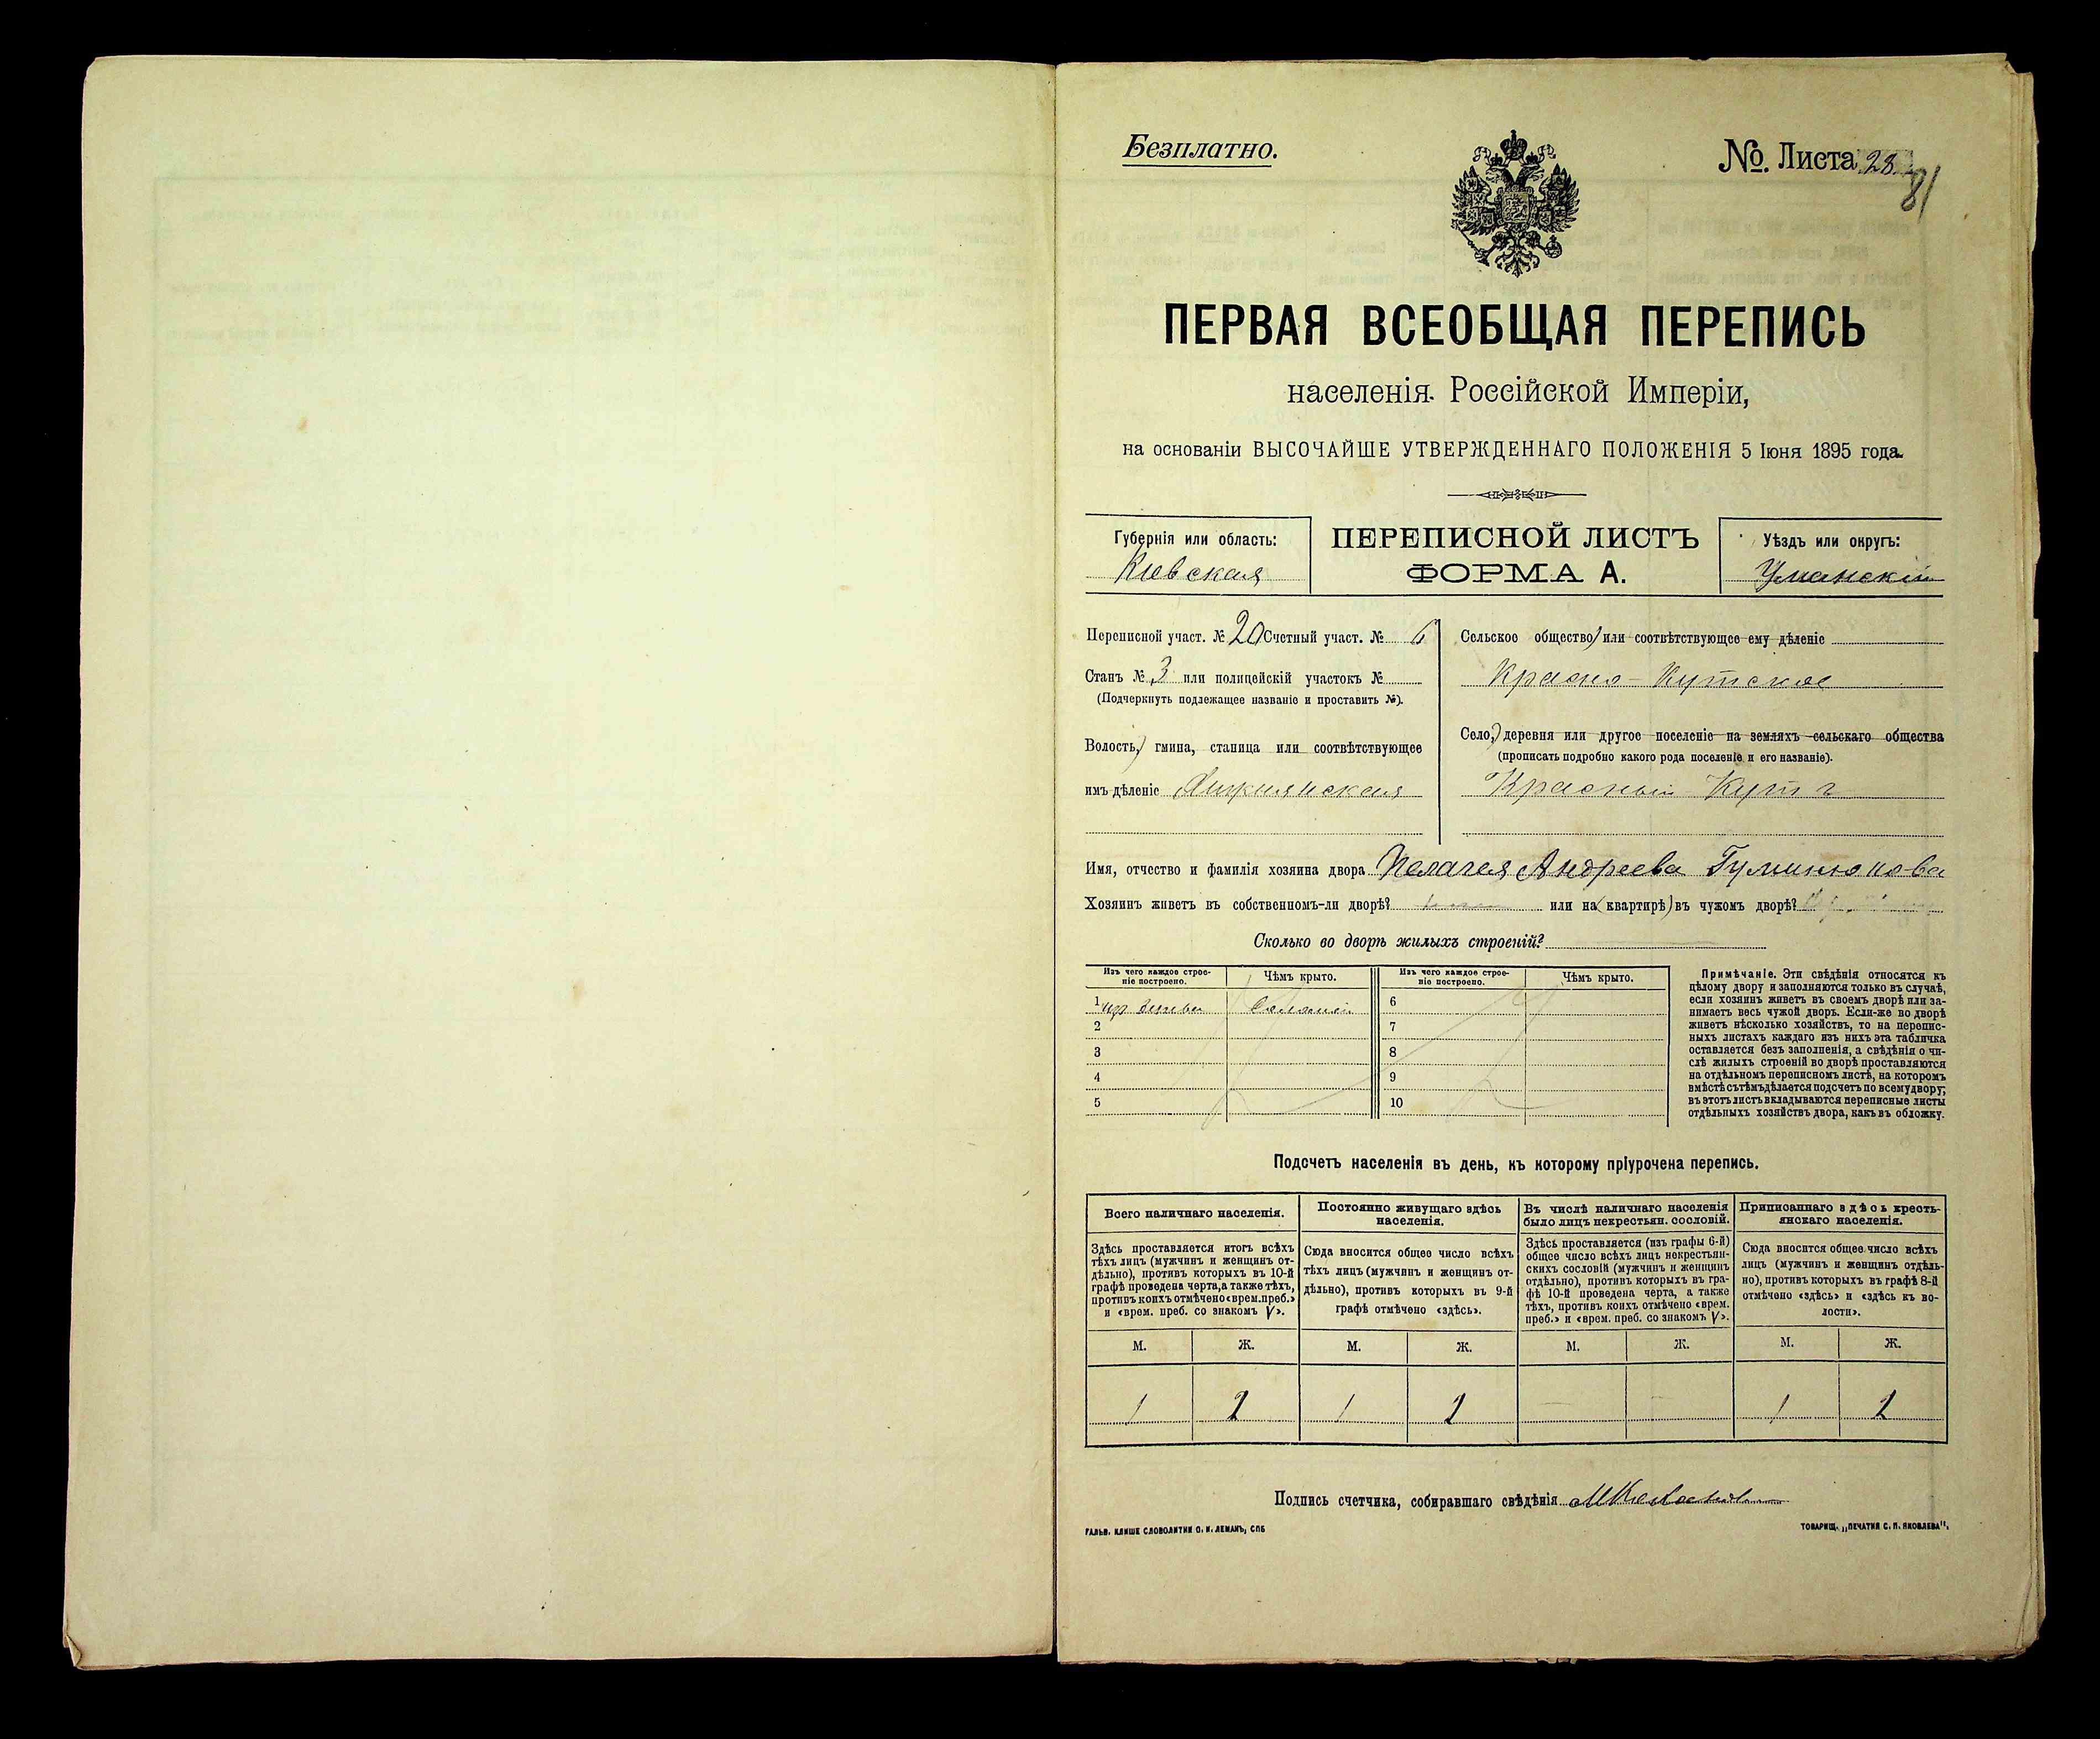 Безплатно.
№ Листа 28
81
ПЕРВАЯ ВСЕОБЩАЯ ПЕРЕПИСЬ
населенія Россійской Имперіи,
на основаніи ВЫСОЧАЙШЕ УТВЕРЖДЕННАГО ПОЛОЖЕНІЯ 5 Іюня 1895 года.
Губернія или область:
Кіевская
ПЕРЕПИСНОЙ ЛИСТЪ
ФОРМА А.
Уѣздъ или округъ:
Уманскій
Переписной участ. № 20 Счетный участ. № 6
Станъ № 3 или полицейскій участокъ №
(Подчеркнуть подлежащее названіе и проставить №).
Волость, гмина, станица или соотвѣтствующее
имъ дѣленіе
Сельское общество или соотвѣтствующее ему дѣленіе
Красно-Кутское
Село, деревня или другое поселеніе на земляхъ сельскаго общества
(прописать подробно какого рода поселеніе и его названіе).
Красный Кутъ
Имя, отчество и фамилія хозяина двора Пелагея Андреева Гуминюкова
Хозяинъ живетъ въ собственномъ-ли дворѣ? или на квартирѣ въ чужомъ дворѣ?
Сколько во дворѣ жилыхъ строеній?
Изъ чего каждое строе-
ніе построено.
Чѣмъ крыто.
Изъ чего каждое строе-
ніе построено.
Чѣмъ крыто.
1 Соломой 6
2 7
3 8
4 9
5 10
Примѣчаніе. Эти свѣдѣнія относятся къ
цѣлому двору и заполняются только въ случаѣ,
если хозяинъ живетъ въ своемъ дворѣ или за-
нимаетъ весь чужой дворъ. Если-же во дворѣ
живетъ нѣсколько хозяйствъ, то на перепис-
ныхъ листахъ каждаго изъ нихъ эта табличка
оставляется безъ заполненія, а свѣдѣнія о чи-
слѣ жилыхъ строеній во дворѣ проставляются
на отдѣльномъ переписномъ листѣ, на которомъ
вмѣстѣ съ тѣмъ дѣлается подсчетъ по всему двору;
въ этотъ листъ вкладываются переписные листы
отдѣльныхъ хозяйствъ двора, какъ въ обложку.
Подсчетъ населенія въ день, къ которому пріурочена перепись.
Всего наличнаго населенія.
Здѣсь проставляется итогъ всѣхъ
тѣхъ лицъ (мужчинъ и женщинъ от-
дѣльно), противъ которыхъ въ 10-й
графѣ проведена черта, а также тѣхъ,
противъ коихъ отмѣчено «врем. преб.»
и «врем. преб. со знакомъ V».
Постоянно живущаго здѣсь
населенія.
Сюда вносится общее число всѣхъ
тѣхъ лицъ (мужчинъ и женщинъ от-
дѣльно), противъ которыхъ въ 9-й
графѣ отмѣчено «здѣсь».
Въ числѣ наличнаго населенія
было лицъ некрестьян. сословій.
Здѣсь проставляется (изъ графы 6-й)
общее число всѣхъ лицъ некрестьян-
скихъ сословій (мужчинъ и женщинъ
отдѣльно), противъ которыхъ въ гра-
фѣ 10-й проведена черта, а также
тѣхъ, противъ коихъ отмѣчено «врем.
преб.» и «врем. преб. со знакомъ V».
Приписаннаго здѣсь кресть-
янскаго населенія.
Сюда вносится общее число всѣхъ
лицъ (мужчинъ и женщинъ отдѣль-
но), противъ которыхъ въ графѣ 8-й
отмѣчено «здѣсь» и «здѣсь къ во-
лости».
М. Ж. М. Ж. М. Ж. М. Ж.
1 2 1 2 — — 1 2
Подпись счетчика, собиравшаго свѣдѣнія
ГАЛЬВ. КЛИШЕ СЛОВОЛИТНИ О. И. ЛЕМАНЪ, СПБ
ТОВАРИЩ. „ПЕЧАТНЯ С. П. ЯКОВЛЕВА".